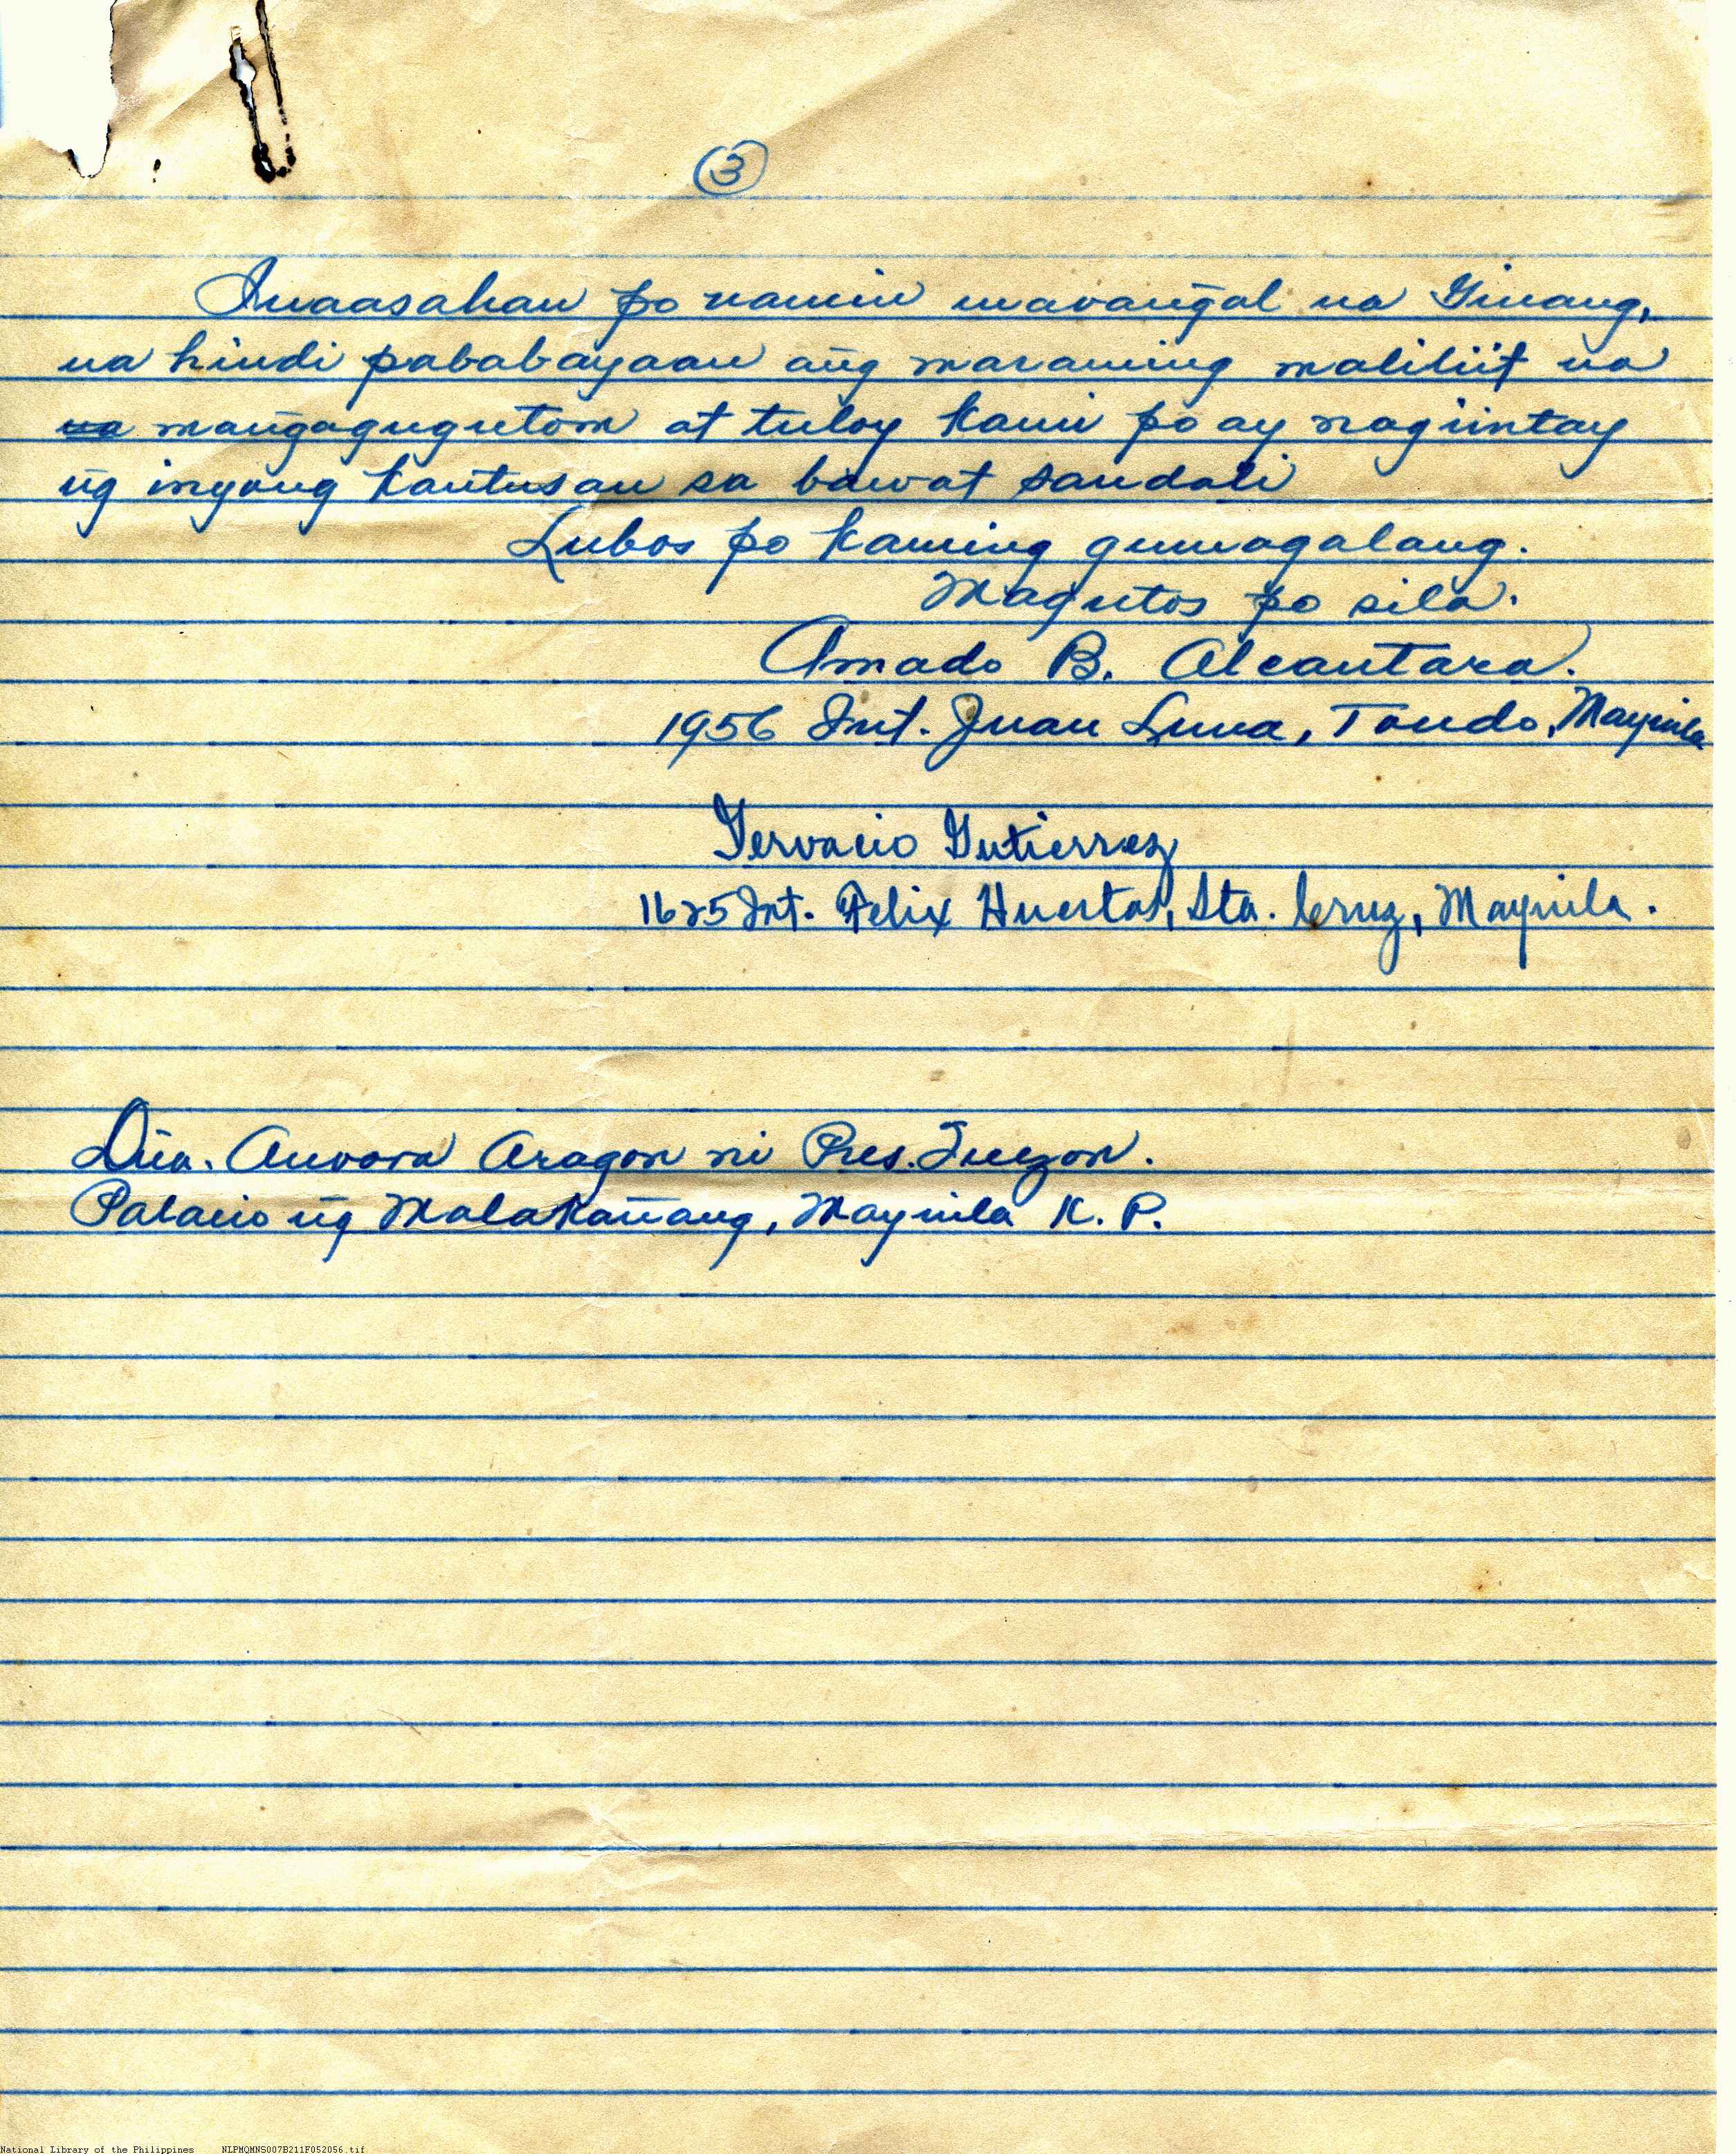 3
Inaasahan po namin marangal na Ginang,
na hindi pababayaan ang maraming maliliit na
na mangagugutom at tuloy kami po ay nagiintay
ng inyong kautusan sa bawat sandali
Lubos po kaming gumagalang.
Magutos po sila.
Amado B. Alcantara.
1956 Int. Juan Luna, Tondo, Maynila
Gervacio Gutierrez
1625 Int. Felix Huertas, Sta. Cruz, Maynila.
Dña. Aurora Aragon ni Pres. Quezon.
Palacio ng Malakañang, Maynila K. P.
National Library of the Philippines NLPMQMNS007B211F052056.tif